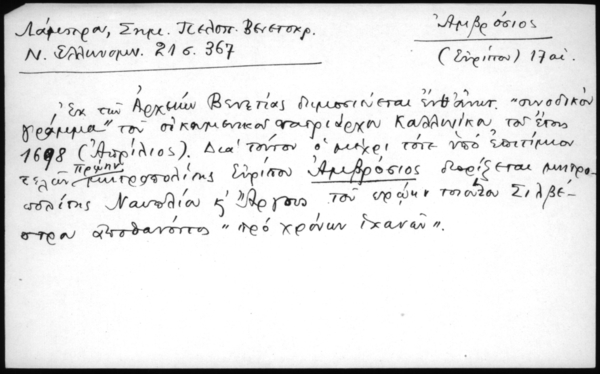 Λάμπρου, Σημ. Πελοπ. Βενετοκρ.
Ν. Ελληνομν. 21 σ. 367
Ἀμβρόσιος
(Εὐρίπου) 17 αἰ.
Ἐκ τῶν Ἀρχείων Βενετίας δημοσιεύεται ἐνθάδε "συνοδικὸν
γράμμα" τοῦ οἰκουμενικοῦ πατριάρχου Καλλινίκου τοῦ ἔτους
1698 (Ἀπρίλιος). Διὰ τούτου ὁ μέχρι τότε ὑπὸ ἐπιτίμιον
πρώην
τελῶν μητροπολίτης Εὐρίπου Ἀμβρόσιος διορίζεται μητρο-
πολίτης Ναυπλίου κ' Ἄργους τοῦ πρώην τοιούτου Σιλβέ-
στρου ἀποθανόντος "πρὸ χρόνων ἱκανῶν".